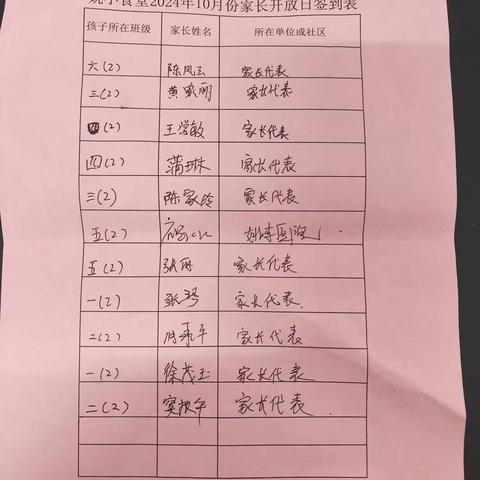 小食堂2024年10月份家长开放日签到表
孩子所在班级 家长姓名 所在单位或社区
六(2) 陈风云 家长代表
三(2) 黄 丽 家长代表
四(2) 王学敏 家长代表
四(2) 蒲琳 家长代表
三(2) 陈家玲 家长代表
五(2)
五(2) 张丹 家长代表
一(2) 张 家长代表
二(2) 平 家长代表
一(2) 徐茂玉 家长代表
二(2) 家长代表